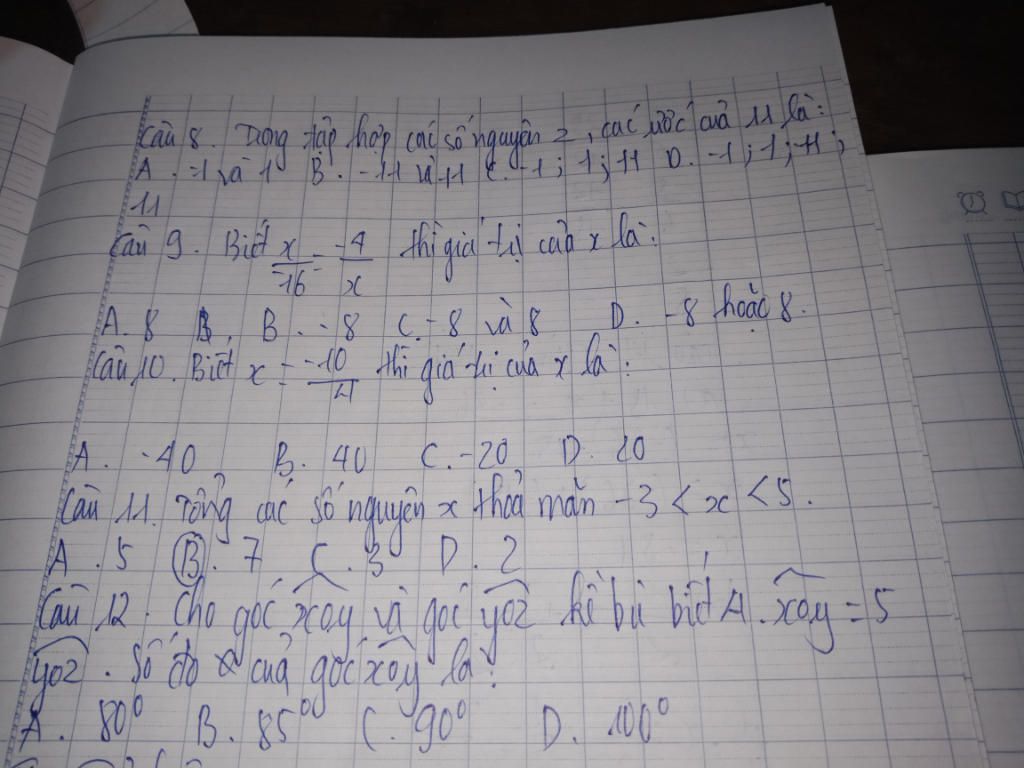 Câu 8. Trong tập hợp các số nguyên Z, các ước của 11 là:
A. -1 và 1 B. -11 và 11 C. -1; 1; 11 D. -1; 1; -11;
11
Câu 9. Biết x/-16 = -4/x thì giá trị của x là:
A. 8 B. -8 C. -8 và 8 D. -8 hoặc 8.
Câu 10. Biết x = -10/4 thì giá trị của x là:
A. -40 B. 40 C. -20 D. 20
Câu 11. Tổng các số nguyên x thoả mãn -3 < x < 5.
A. 5 B. 7 C. 3 D. 2
Câu 12. Cho góc xoy và góc yoz kề bù biết 4. xoy = 5
yoz. Số đo của góc xoy là:
A. 80° B. 85° C. 90° D. 100°